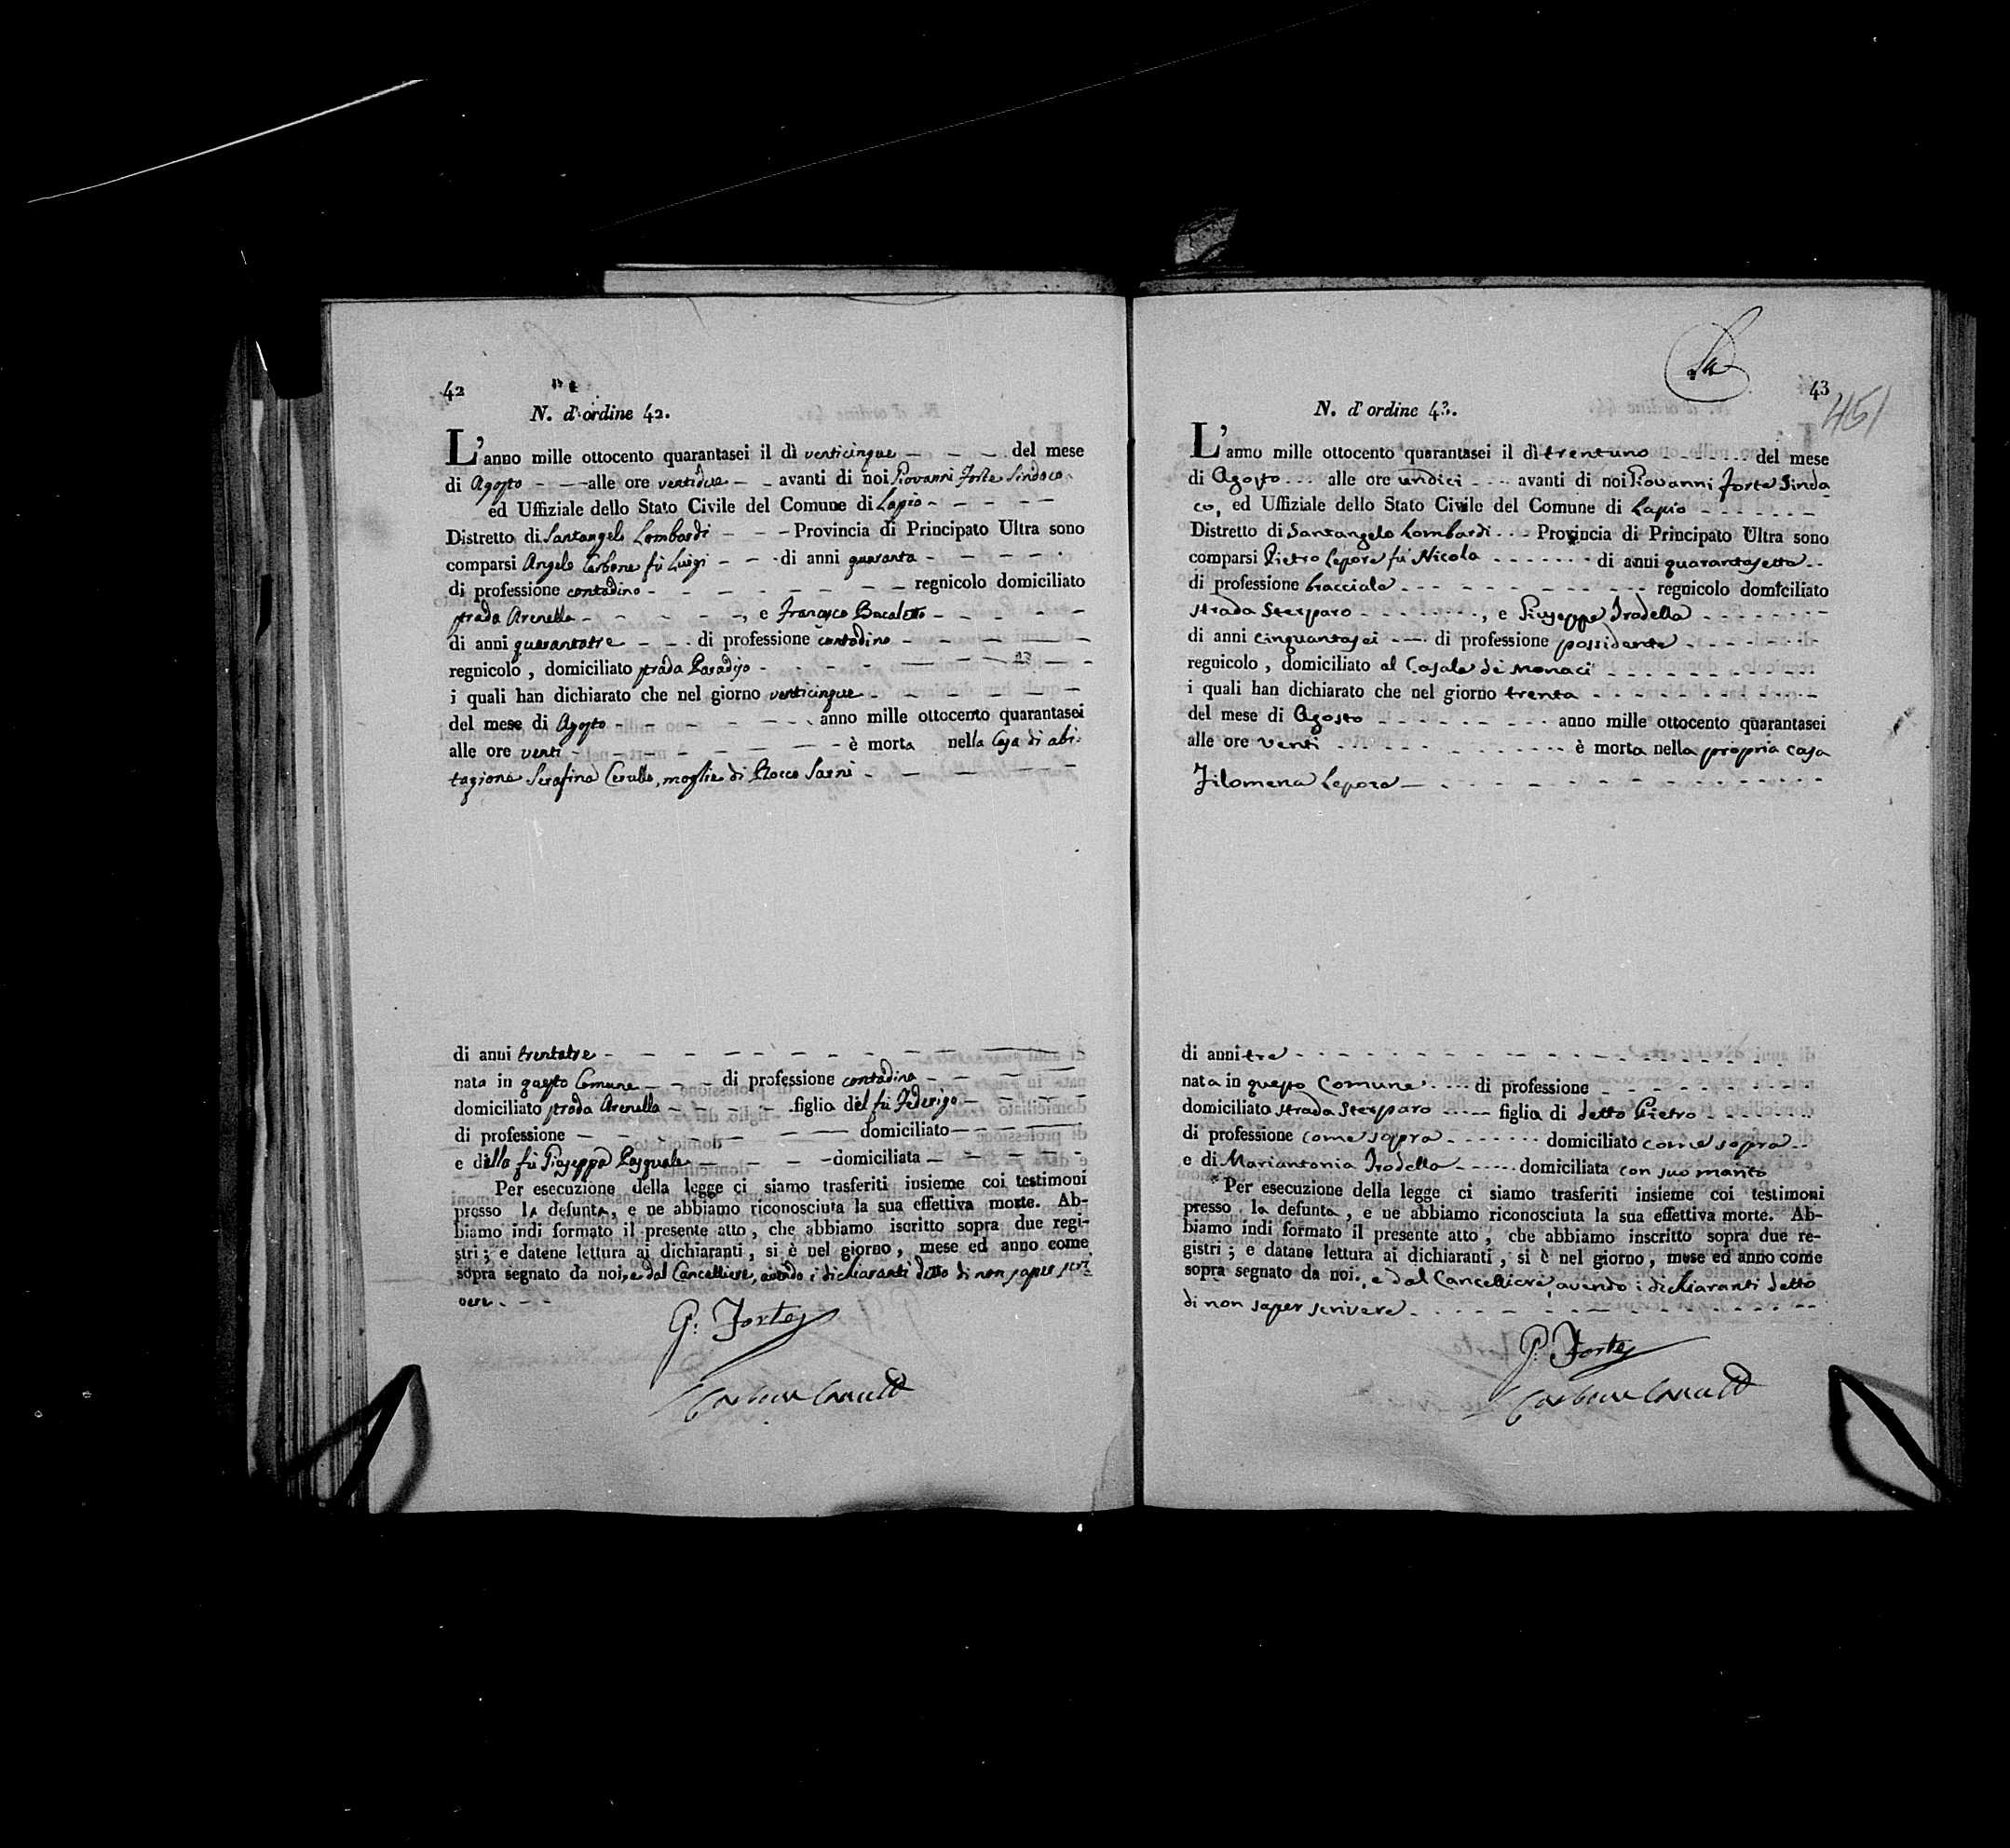 42
N. d'ordine 42.
L'anno mille ottocento quarantasei il dì venticinque del mese
di Agosto alle ore ventidue avanti di noi Giovanni Forte Sindaco
ed Uffiziale dello Stato Civile del Comune di Lapio
Distretto di Santangelo Lombardi Provincia di Principato Ultra sono
comparsi Angelo Carbone fù Luigi di anni quaranta
di professione contadino regnicolo domiciliato
strada Arenella, e Francesco
di anni quarantatre di professione contadino
regnicolo, domiciliato strada Paradiso
i quali han dichiarato che nel giorno venticinque
del mese di Agosto anno mille ottocento quarantasei
alle ore venti è morta nella Casa di abi-
tazione Serafina Cerullo, moglie di Rocco Sarni
di anni trentatre
nata in questo Comune di professione contadina
domiciliato strada Arenella figlia del fù Federigo
di professione domiciliato
e della fù Giuseppa Pasquale domiciliata
Per esecuzione della legge ci siamo trasferiti insieme coi testimoni
presso la defunta, e ne abbiamo riconosciuta la sua effettiva morte. Ab-
biamo indi formato il presente atto, che abbiamo iscritto sopra due regi-
stri; e datene lettura ai dichiaranti, si è nel giorno, mese ed anno come
sopra segnato da noi, e dal Cancelliere, avendo i dichiaranti detto di non saper scri-
vere
G. Forte
43
451
N. d'ordine 43.
L'anno mille ottocento quarantasei il dì trentuno del mese
di Agosto alle ore undici avanti di noi Giovanni Forte Sinda
co, ed Uffiziale dello Stato Civile del Comune di Lapio
Distretto di Santangelo Lombardi Provincia di Principato Ultra sono
comparsi Pietro Lepore fù Nicola di anni quarantasette
di professione bracciale regnicolo domiciliato
strada Sterparo, e Giuseppe Trodella
di anni cinquantasei di professione possidente
regnicolo, domiciliato al Casale de' Monaci
i quali han dichiarato che nel giorno trenta
del mese di Agosto anno mille ottocento quarantasei
alle ore venti è morta nella propria casa
Filomena Lepore
di anni tre
nata in questo Comune di professione
domiciliato strada Sterparo figlia di detto Pietro
di professione come sopra domiciliato come sopra
e di Mariantonia Trodella domiciliata con suo marito
Per esecuzione della legge ci siamo trasferiti insieme coi testimoni
presso la defunta, e ne abbiamo riconosciuta la sua effettiva morte. Ab-
biamo indi formato il presente atto, che abbiamo inscritto sopra due re-
gistri; e datane lettura ai dichiaranti, si è nel giorno, mese ed anno come
sopra segnato da noi, e dal Cancelliere, avendo i dichiaranti detto
di non saper scrivere
G. Forte